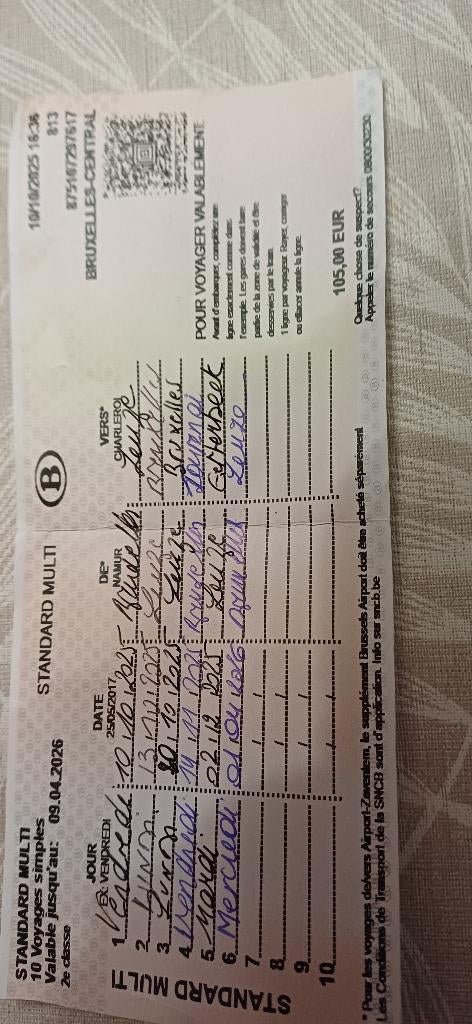 STANDARD MULTI
10 Voyages simples
Valable jusqu'au: 09.04.2026
2e classe
STANDARD MULTI
B
10/10/2025 16:36
813
BRUXELLES-CENTRAL
JOUR DATE DE* VERS*
EX: VENDREDI 25/05/2017 NAMUR CHARLEROI
1 Vendredi 10/10/2025 Bruxelles Leuze
2 Lundi 13 2025 Leuze Bruxelles
3 Lundi 20/10/2025 Leuze Bruxelles
4 Vendredi 14/11/2025 Bruxelles Tournai
5 Mardi 02/12/2025 Leuze Etterbeek
6 Mercredi 01/04/2026 Bruxelles Leuze
7 / /
8 / /
9 / /
10 / /
STANDARD MULTI
POUR VOYAGER VALABLEMENT
Avant d'embarquer, complétez une
ligne exactement comme dans
l'exemple. Les gares doivent faire
partie de la zone de validité et être
desservies par le train.
1 ligne par voyageur. Rayer, corriger
ou effacer annule la ligne.
105,00 EUR
* Pour les voyages de/vers Airport-Zaventem, le supplément Brussels Airport doit être acheté séparément
Les Conditions de Transport de la SNCB sont d'application. Info sur sncb.be
Quelque chose de suspect?
Appelez le numéro de secours 080030230